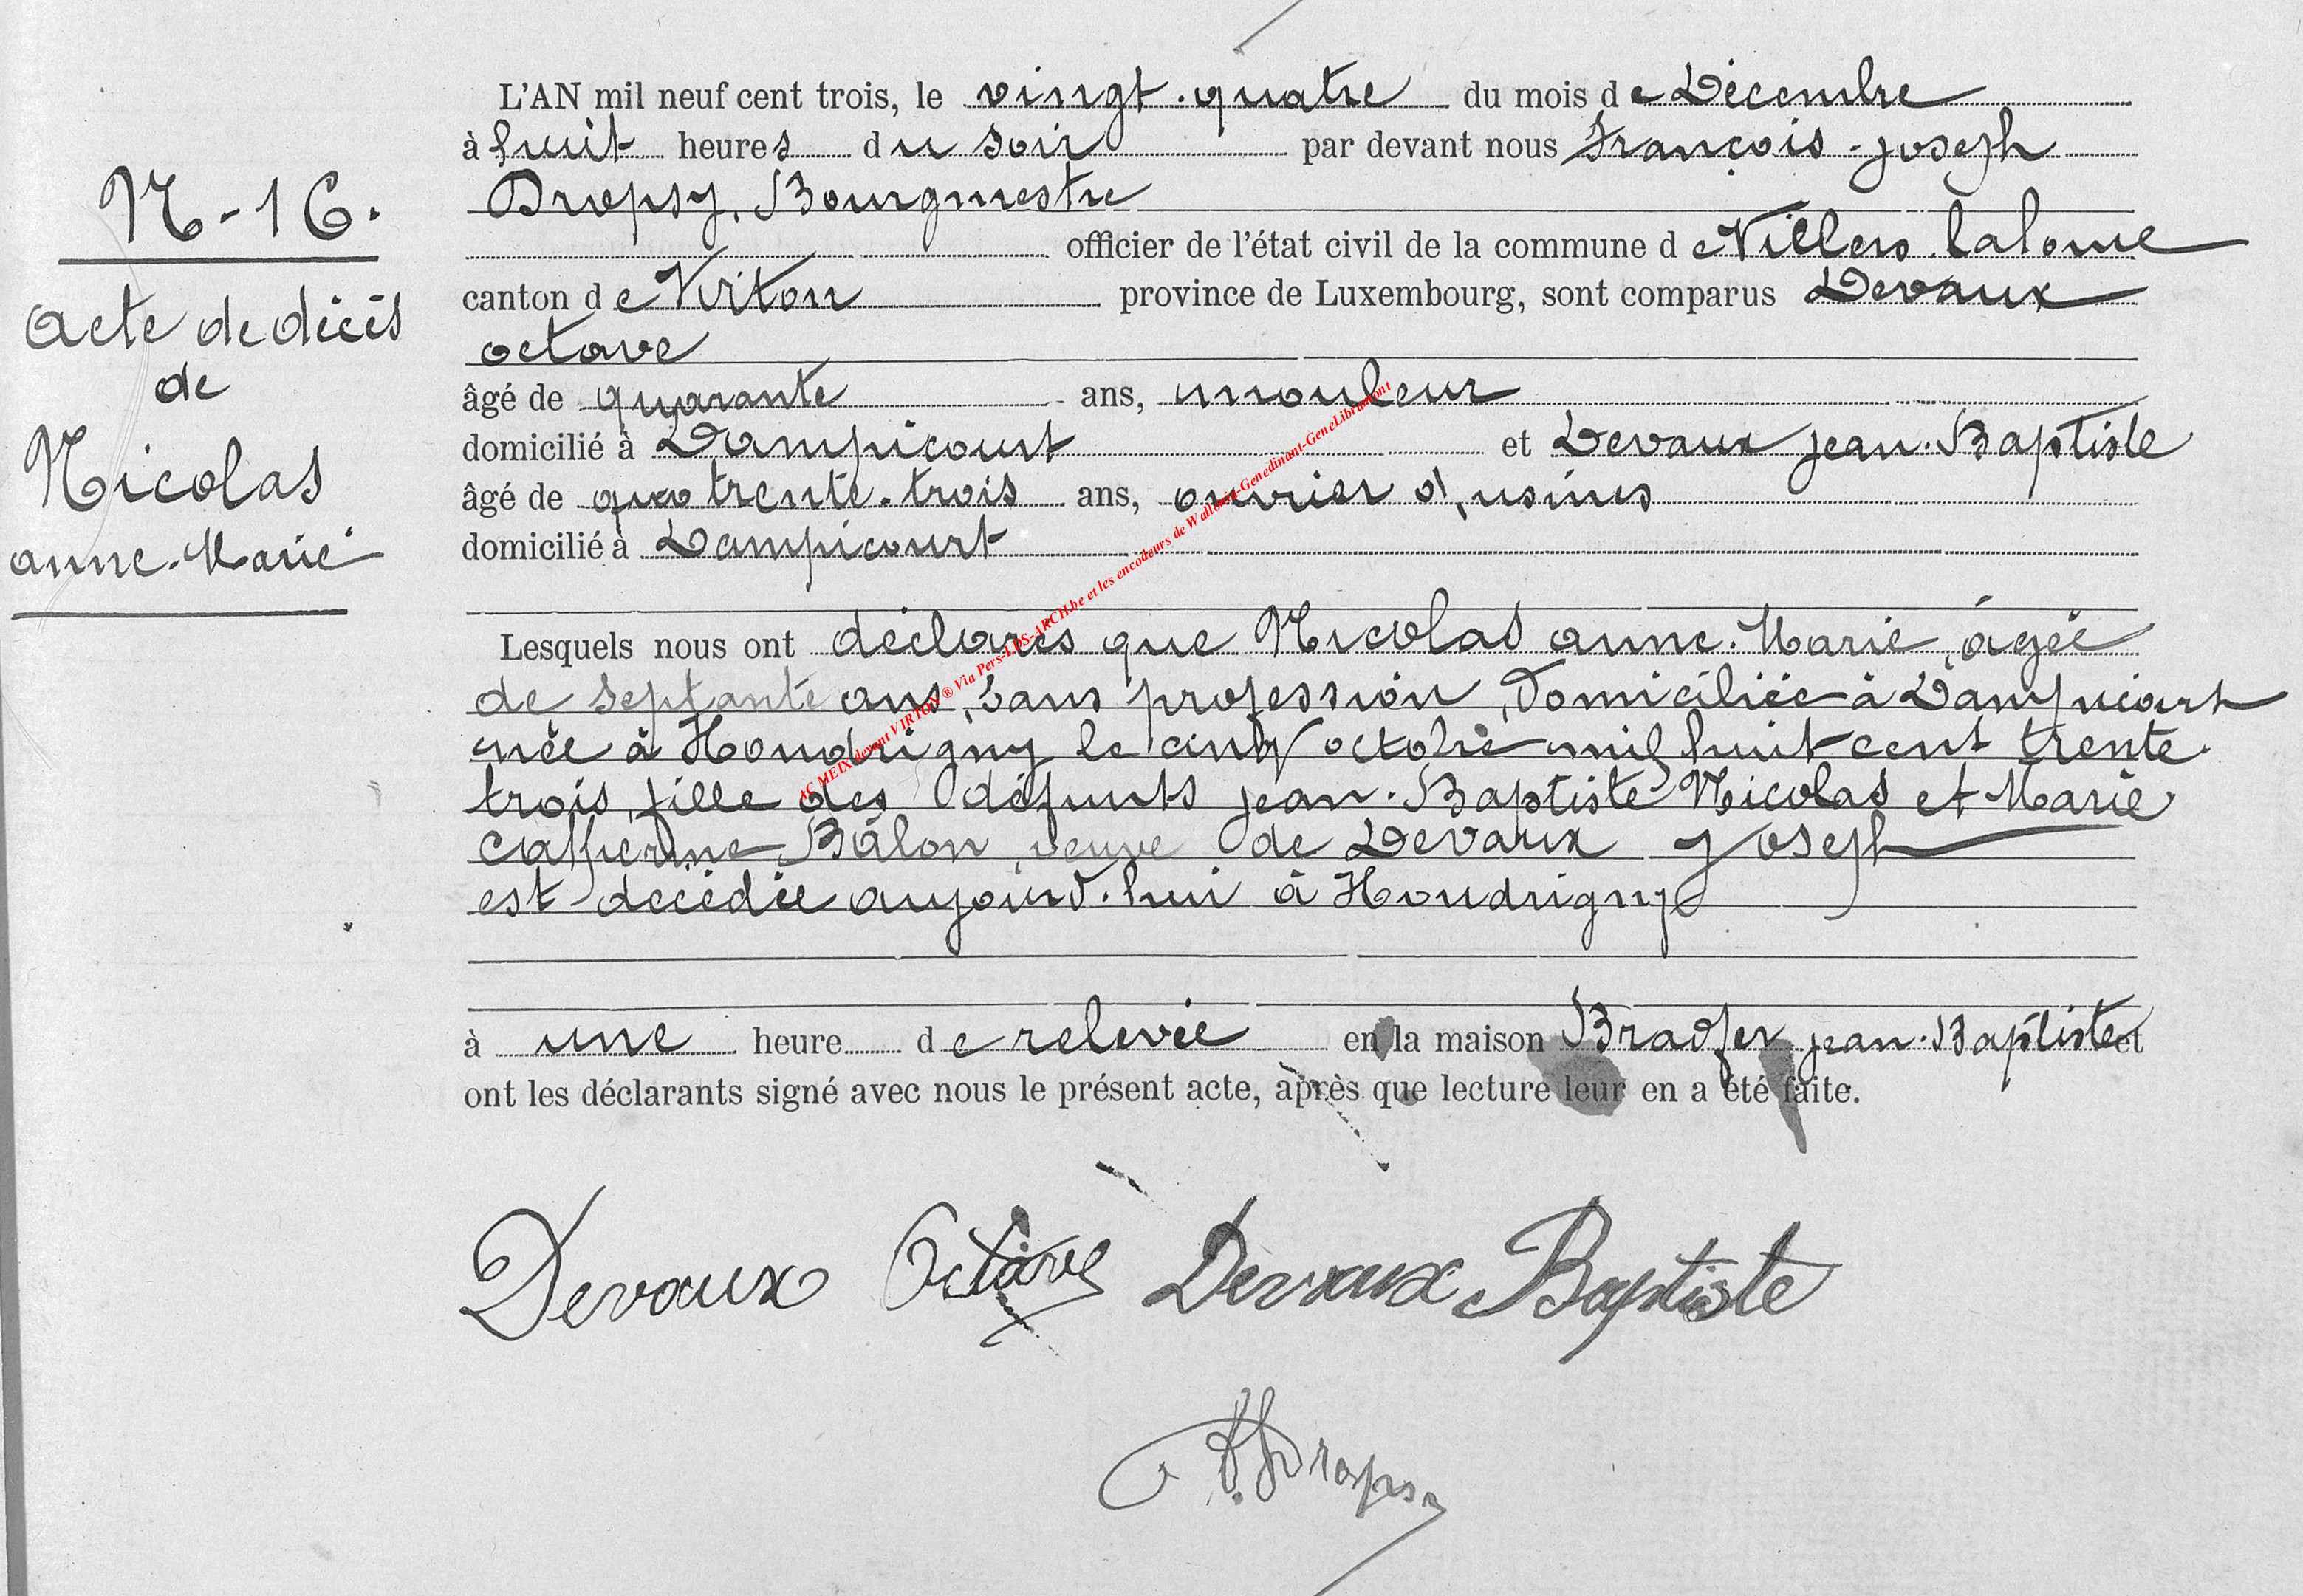 N-16.
Acte de décès
de
Nicolas
anne-Marie
L'AN mil neuf cent trois, le vingt-quatre du mois de Décembre
à huit heures du soir par devant nous François-joseph
Dropsy, Bourgmestre
officier de l'état civil de la commune de Villers-laloue
canton de Virton province de Luxembourg, sont comparus Devaux
octave
âgé de quarante ans, mouleur
domicilié à Dampicourt et Devaux jean-Baptiste
âgé de qua trente-trois ans, ouvrier d'usines
domicilié à Dampicourt
Lesquels nous ont déclarés que Nicolas anne-Marie, âgée
de septante ans, sans profession, Domiciliée à Dampicourt
née à Houdrigny le cinq octobre mil huit cent trente
trois, fille des défunts jean-Baptiste Nicolas et Marie
Catherine Bâlon, veuve de Devaux Joseph
est décédée aujourd'hui à Houdrigny
à une heure de relevée en la maison Bradfer jean-Baptiste et
ont les déclarants signé avec nous le présent acte, après que lecture leur en a été faite.
Devaux Octave Devaux Baptiste
FJDropsy
AC MEIX devant VIRTON ® Via Pers-LDS-ARCH.be et les encodeurs de Wallonie-Genedinant-GeneLibramont